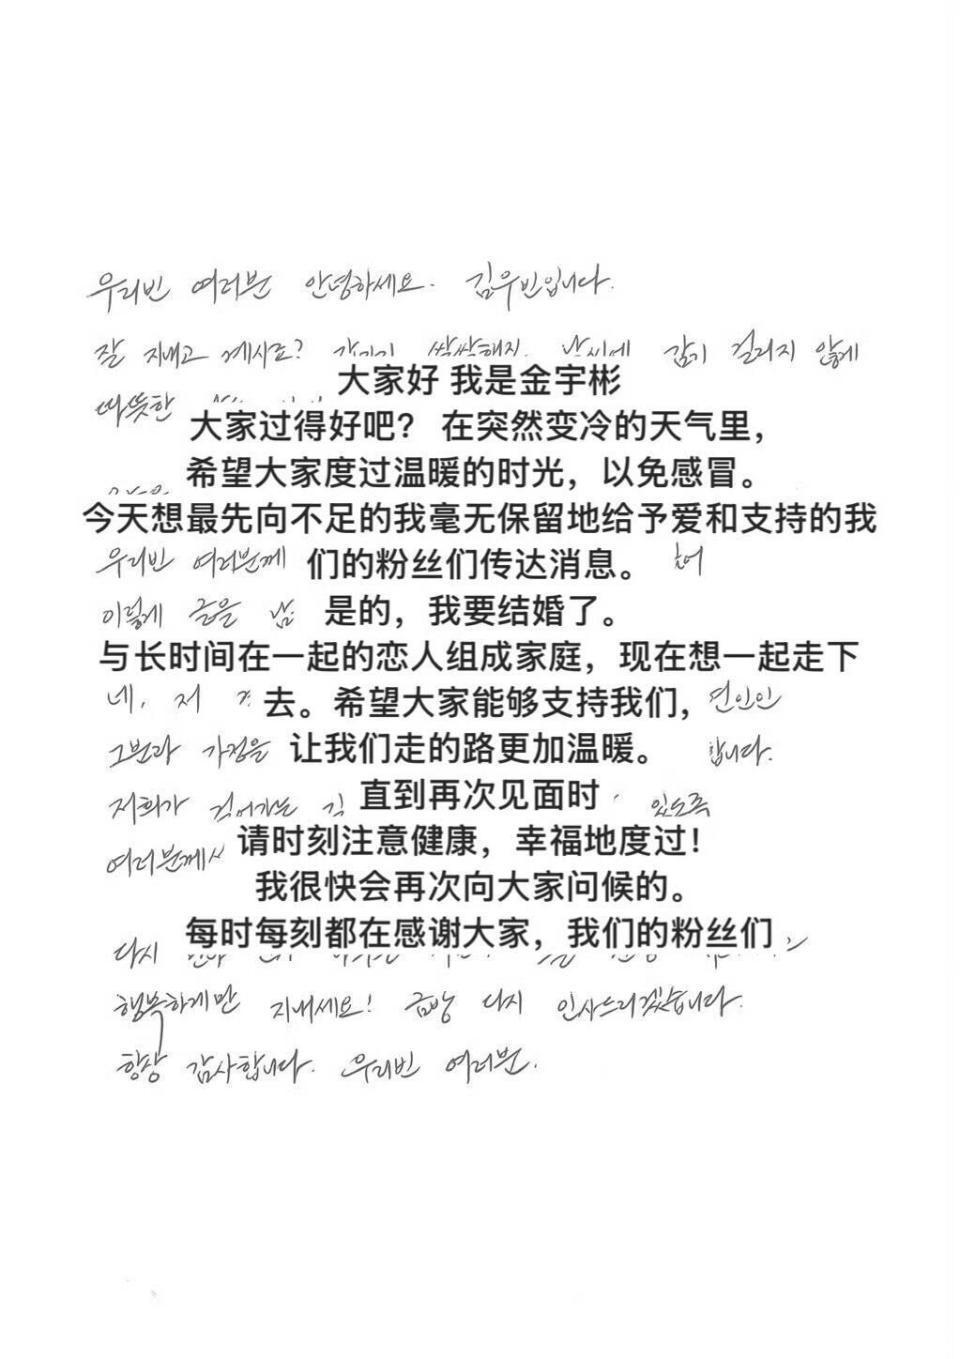 우리빈 여러분 안녕하세요. 김우빈입니다.
잘 지내고 계시죠? 갑자기 쌀쌀해진 날씨에 감기 걸리지 않게
大家好 我是金宇彬
따뜻한
大家过得好吧？ 在突然变冷的天气里，
希望大家度过温暖的时光，以免感冒。
今天想最先向不足的我毫无保留地给予爱和支持的我
우리빈 여러분께 们的粉丝们传达消息。
이렇게 글을 是的，我要结婚了。
与长时间在一起的恋人组成家庭，现在想一起走下
네, 저 去。希望大家能够支持我们, 연인인
그분과 가정을 让我们走的路更加温暖。 합니다.
저희가 걸어가는 直到再次见面时 있도록
여러분께서 请时刻注意健康，幸福地度过！
我很快会再次向大家问候的。
每时每刻都在感谢大家，我们的粉丝们
다시
행복하게만 지내세요! 금방 다시 인사드리겠습니다.
항상 감사합니다. 우리빈 여러분.